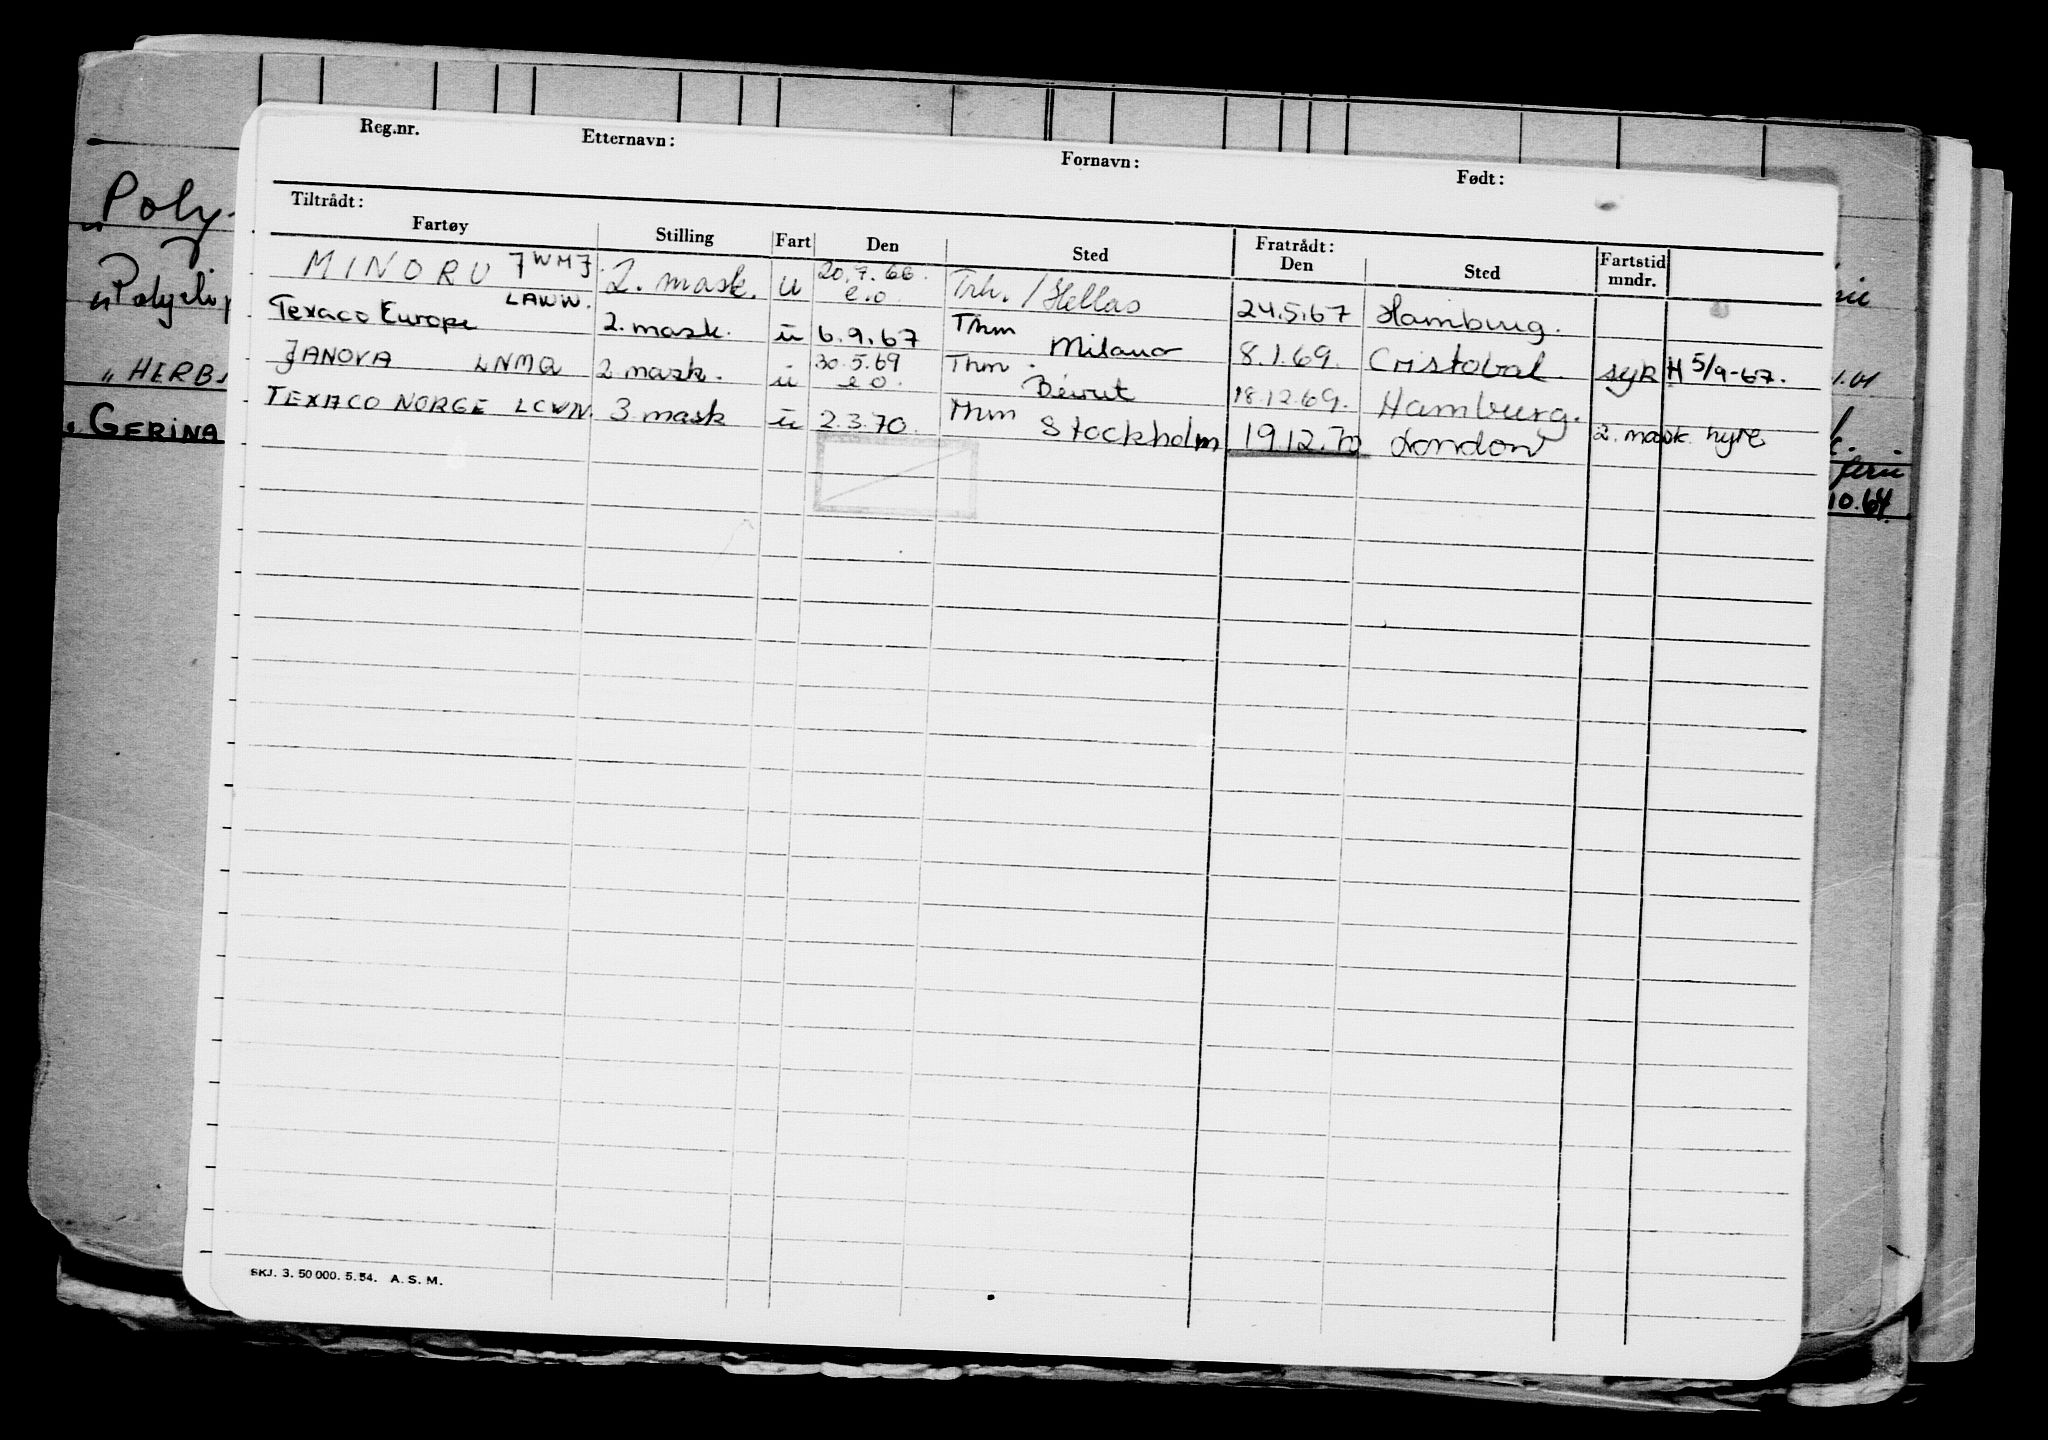 Reg.nr. Etternavn: Fornavn: Født:
Tiltrådt: Fratrådt:
Fartøy Stilling Fart Den Sted Den Sted Fartstid mndr.
MINORU JWMJ. 2. mask. u 20.7.66. e.o. Trh. / Hellas 24.5.67 Hamburg.
Texaco Europe LAWW. 2. mask. u 6.9.67 Thm Milano 8.1.69. Cristobal. syk H 5/9-67.
JANOVA LNMQ 2 mask. u 30.5.69 e o. Thm. Beirut 18.12.69. Hamburg.
TEXACO NORGE LCWN. 3 mask u 2.3.70. Thm Stockholm 19.12.70 London 2. mask. hyre
SKJ. 3. 50 000. 5. 54. A. S. M.
Poly-
" HERB
" GERINA
10.64.